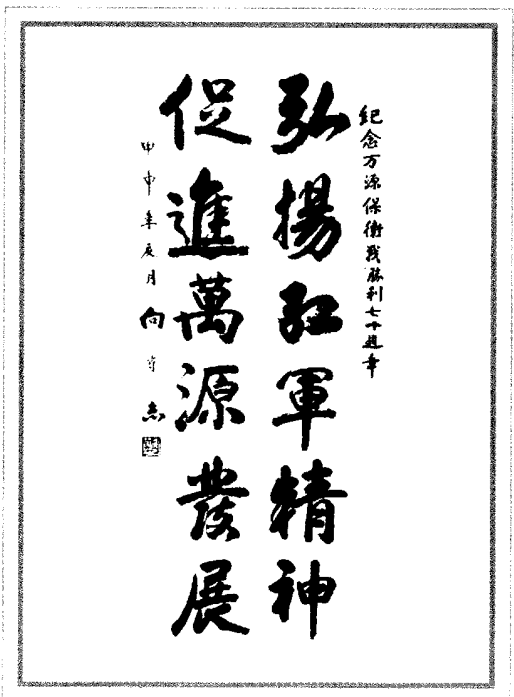 纪念万源保衛战勝利七十週年
弘揚紅軍精神
促進萬源發展
甲申年辰月 向守志